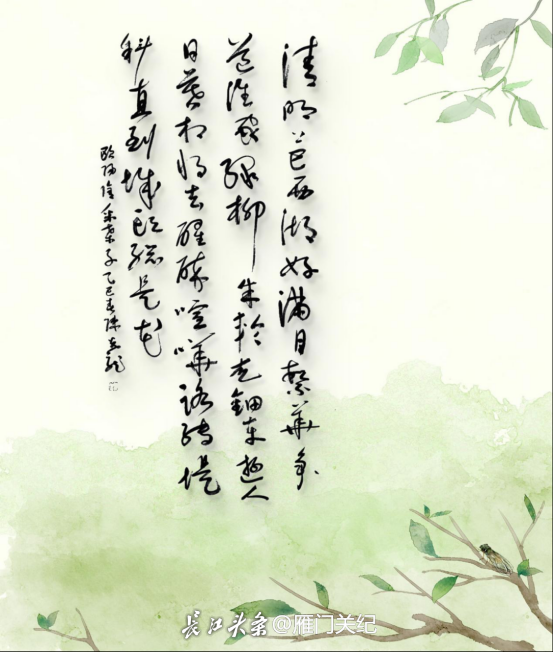 清明上巳西湖好满目繁華争
道谁家绿柳朱轮走钿车遊人
日暮相将去醒醉喧嘩路转堤
斜直到城头总是花
欧阳修采桑子乙巳春陈
长江头条@雁门关纪